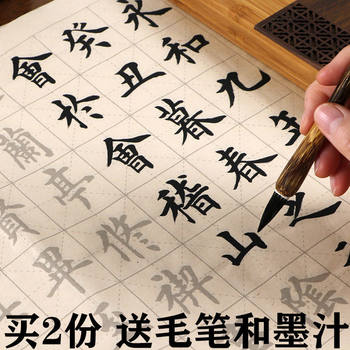 永和九年
癸丑暮春之
會於會稽山陰
蘭亭修禊
賢畢
买2份 送毛笔和墨汁